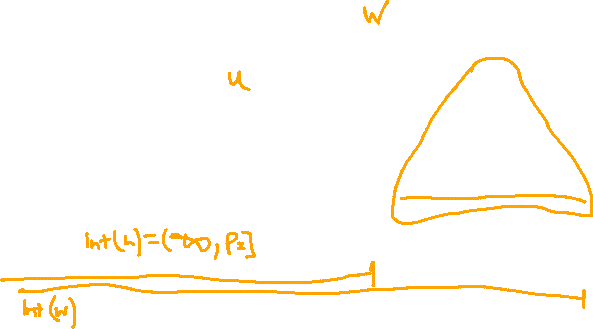 W
u
int(u)=(-∞, Px]
int(w)